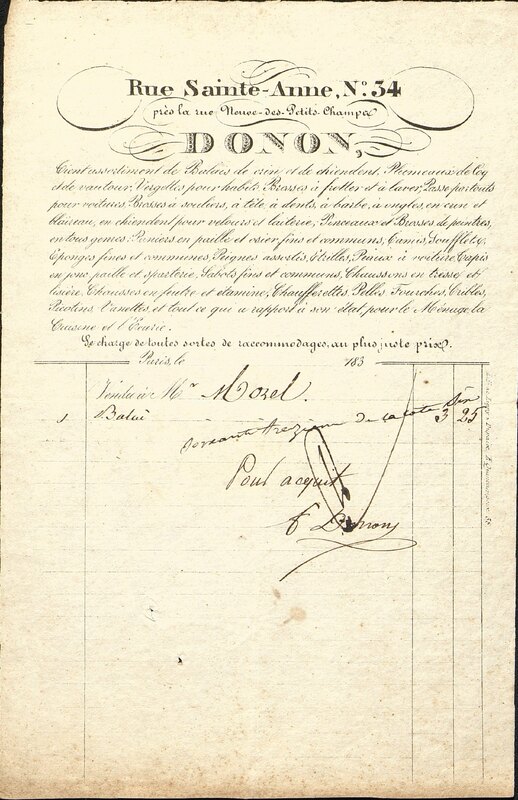 Rue Sainte-Anne, N.º 34
près la rue Neuve-des-Petits-Champs
DONON,
Tient assortiment de Balais de crin et de chiendent, Plumeaux de Coq
et de vautour, Vergettes pour habits, Brosses à frotter et à laver, Passe partouts
pour voitures, Brosses à souliers, à tête, à dents, à barbe, à ongles, en crin et
blaireau, en chiendent pour velours et laiterie, Pinceaux et Brosses de peintres,
en tous genres, Paniers en paille et osier fins et communs, Tamis, Soufflets,
Eponges fines et communes, Peignes assortis, Etrilles, Pinceaux à voiture, Tapis
en jonc paille et sparterie, Sabots fins et communs, Chaussons en tresse et
lisière, Chausses en feutre et étamine, Chaufferettes, Pelles, Fourches, Cribles,
Picotins, Vanettes, et tout ce que a rapport à son état, pour le Ménage, la
Cuisine et l'Ecurie.
Se charge de toutes sortes de raccommodages, au plus juste prix.
Paris, le 183
Vendu à M.r Morel.
1 Balai 3 25
soixante treizième de la cote
Pour acquit
F Donon